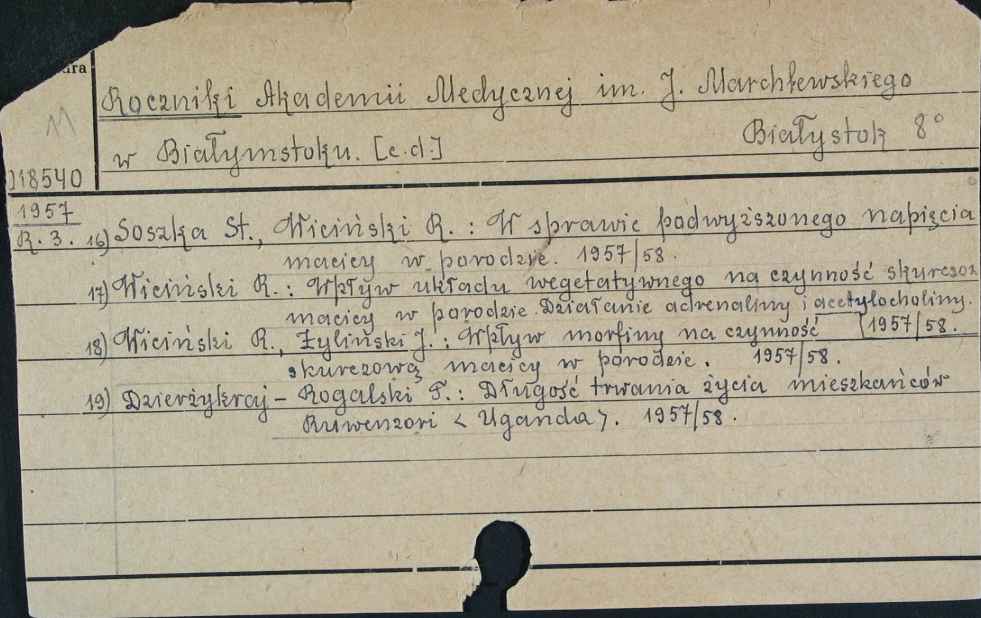 ura
Roczniki Akademii Medycznej im. J. Marchlewskiego
11
w Białymstoku. [c.d.] Białystok 8°
018540
1957
R. 3. 16) Soszka St., Wiciński R. : W sprawie podwyższonego napięcia
macicy w porodzie. 1957/58.
17) Wiciński R. : Wpływ układu wegetatywnego na czynność skurczow
macicy w porodzie. Działanie adrenaliny i acetylocholiny.
18) Wiciński R., Żyliński J. : Wpływ morfiny na czynność [1957/58.
skurczową macicy w porodzie. 1957/58.
19) Dzierżykraj - Rogalski T. : Długość trwania życia mieszkańców
Ruwenzori < Uganda >. 1957/58.